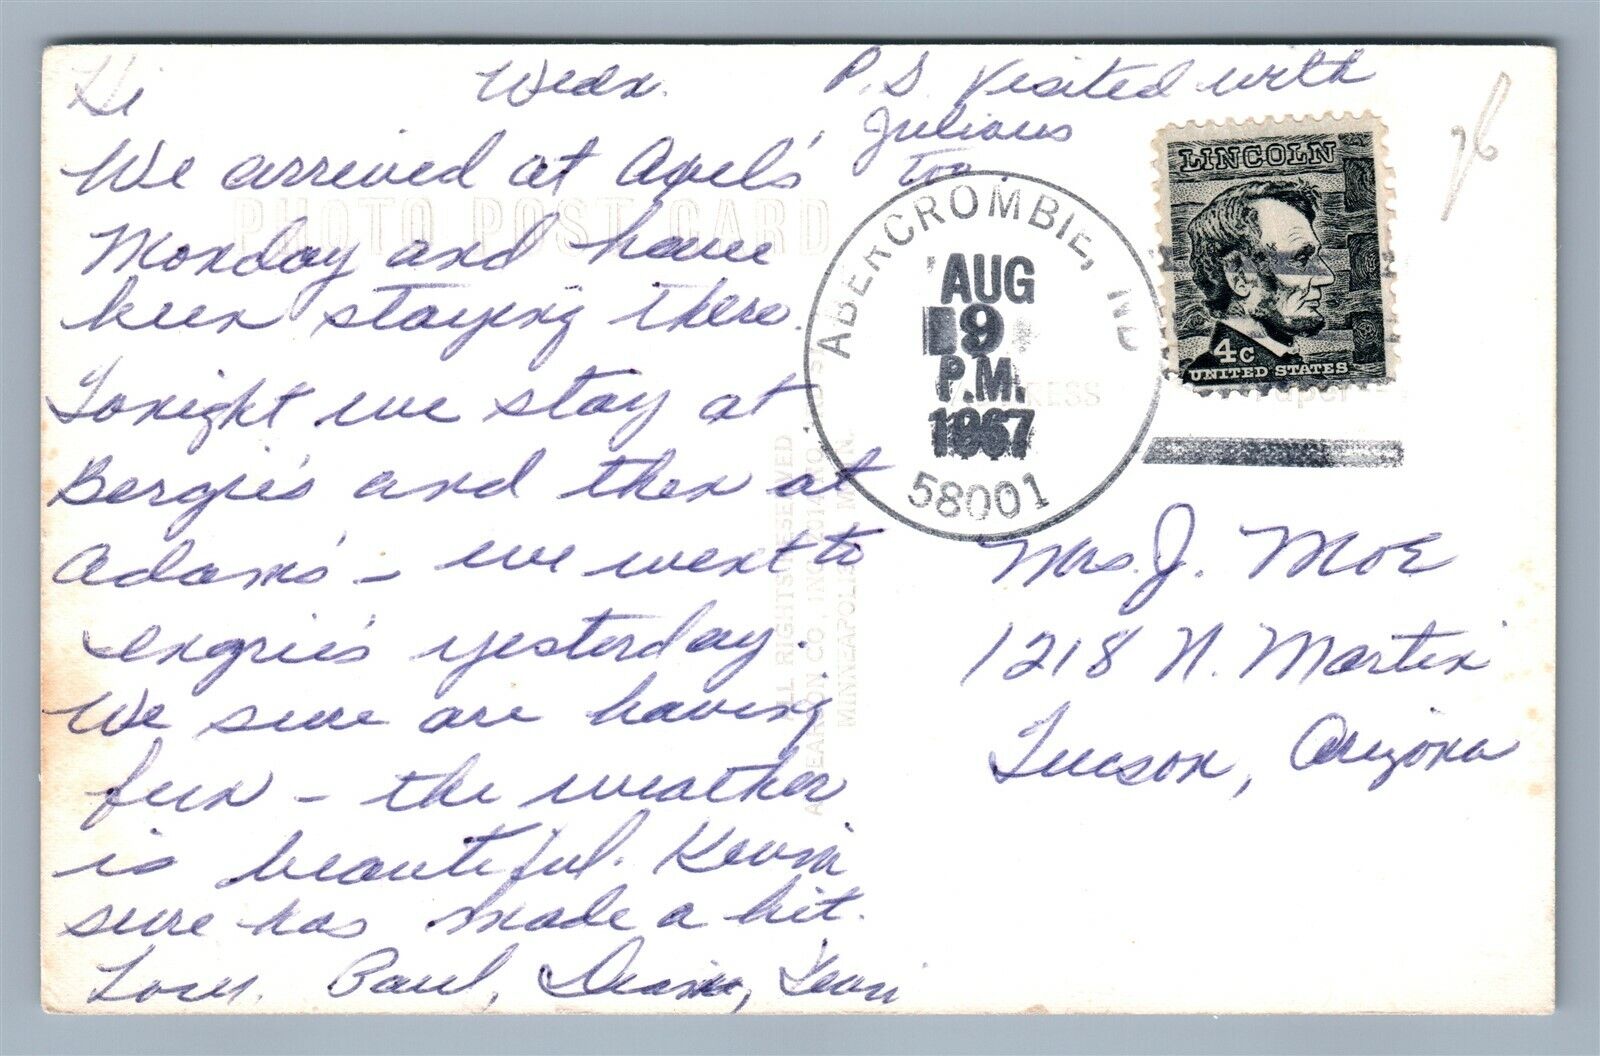 Hi Wedn.
We arrived at Axel's
Monday and have
been staying there.
Tonight we stay at
Bergie's and then at
Adams' – we went to
Engrie's yesterday.
We sure are having
fun – the weather
is beautiful. Kevin
sure has made a hit.
Love, Paul, Diane, Kevin
P.S. Visited with
Julians
too.
PHOTO POST CARD
ABERCROMBIE, ND
AUG
9
P.M.
1967
58001
LINCOLN
4c
UNITED STATES
ADDRESS
Mrs. J. Moe
1218 N. Martin
Tucson, Arizona
ALL RIGHTS RESERVED
PEARSON CO., INC.
MINNEAPOLIS, MINN.